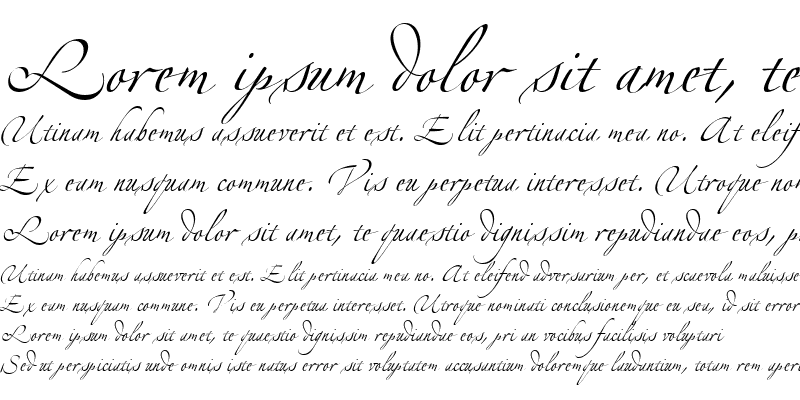 Lorem ipsum dolor sit amet, te
Utinam habemus assueverit et est. Elit pertinacia mea no. At eleif
Ex eam nusquam commune. Vis eu perpetua interesset. Utroque non
Lorem ipsum dolor sit amet, te quaestio dignissim repudiandae eos, p
Utinam habemus assueverit et est. Elit pertinacia mea no. At eleifend adversarium per, et scaevola maluisse
Ex eam nusquam commune. Vis eu perpetua interesset. Utroque nominati conclusionemque eu sea, id sit error
Lorem ipsum dolor sit amet, te quaestio dignissim repudiandae eos, pri an vocibus facilisis voluptari
Sed ut perspiciatis unde omnis iste natus error sit voluptatem accusantium doloremque laudantium, totam rem aperi